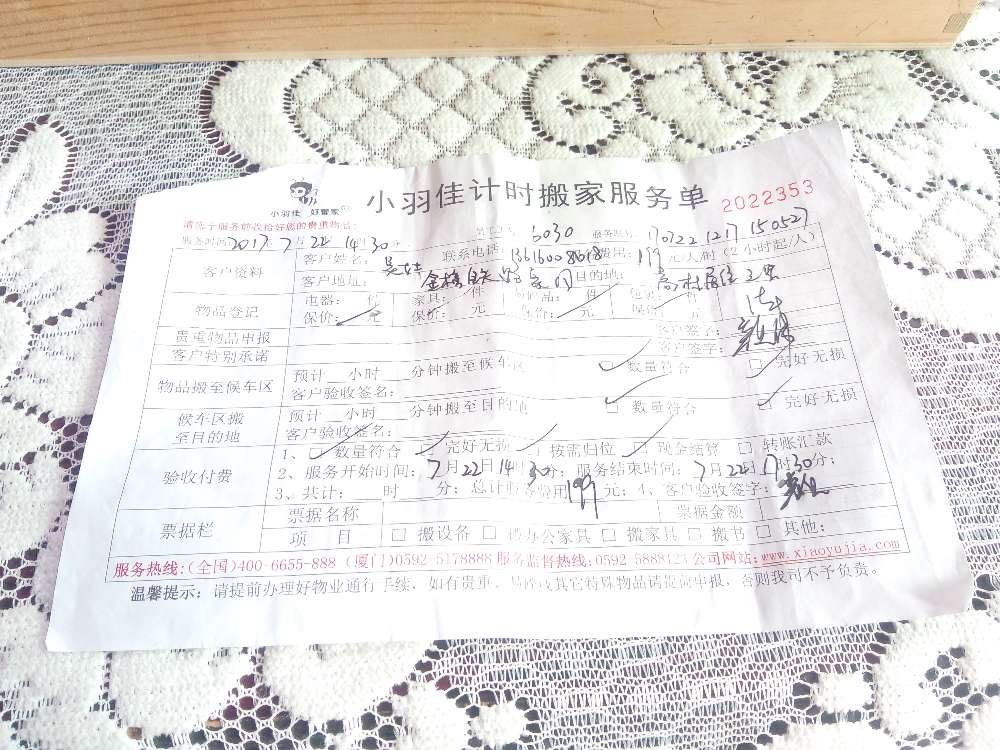 小羽佳 好管家
小羽佳计时搬家服务单 2022353
请您于服务前收拾好您的贵重物品:
服务时间 2017年7月22日14时30分 6030 170722 1217 150527
客户资料 客户姓名: 联系电话: 费出: 199 元/人/时(2小时起/人)
客户地址: 目的地:
物品登记 电器: 件 家具: 件 件 件
保价: 元 保价: 元 保价: 元 保价: 元
贵重物品申报 客户签字:
客户特别承诺 客户签字:
物品搬至候车区 预计 小时 分钟搬至候车区 数量符合 完好无损
客户验收签名:
候车区搬至目的地 预计 小时 分钟搬至目的地 数量符合 完好无损
客户验收签名:
验收付费 1、 数量符合 完好无损 按需归位 现金结算 转账汇款
2、服务开始时间: 7月22日14时30分; 服务结束时间: 7月22日17时30分;
3、共计: 时 分; 总计服务费用 元; 4、客户验收签字:
票据栏 票据名称 票据金额
项 目 搬设备 搬办公家具 搬家具 搬书 其他:
服务热线:(全国)400-6655-888 (厦门)0592-5178888 服务监督热线:0592 5888123 公司网站:www.xiaoyujia.com
温馨提示: 请提前办理好物业通行手续, 如有贵重、易碎及其它特殊物品请提前申报, 否则我司不予负责。